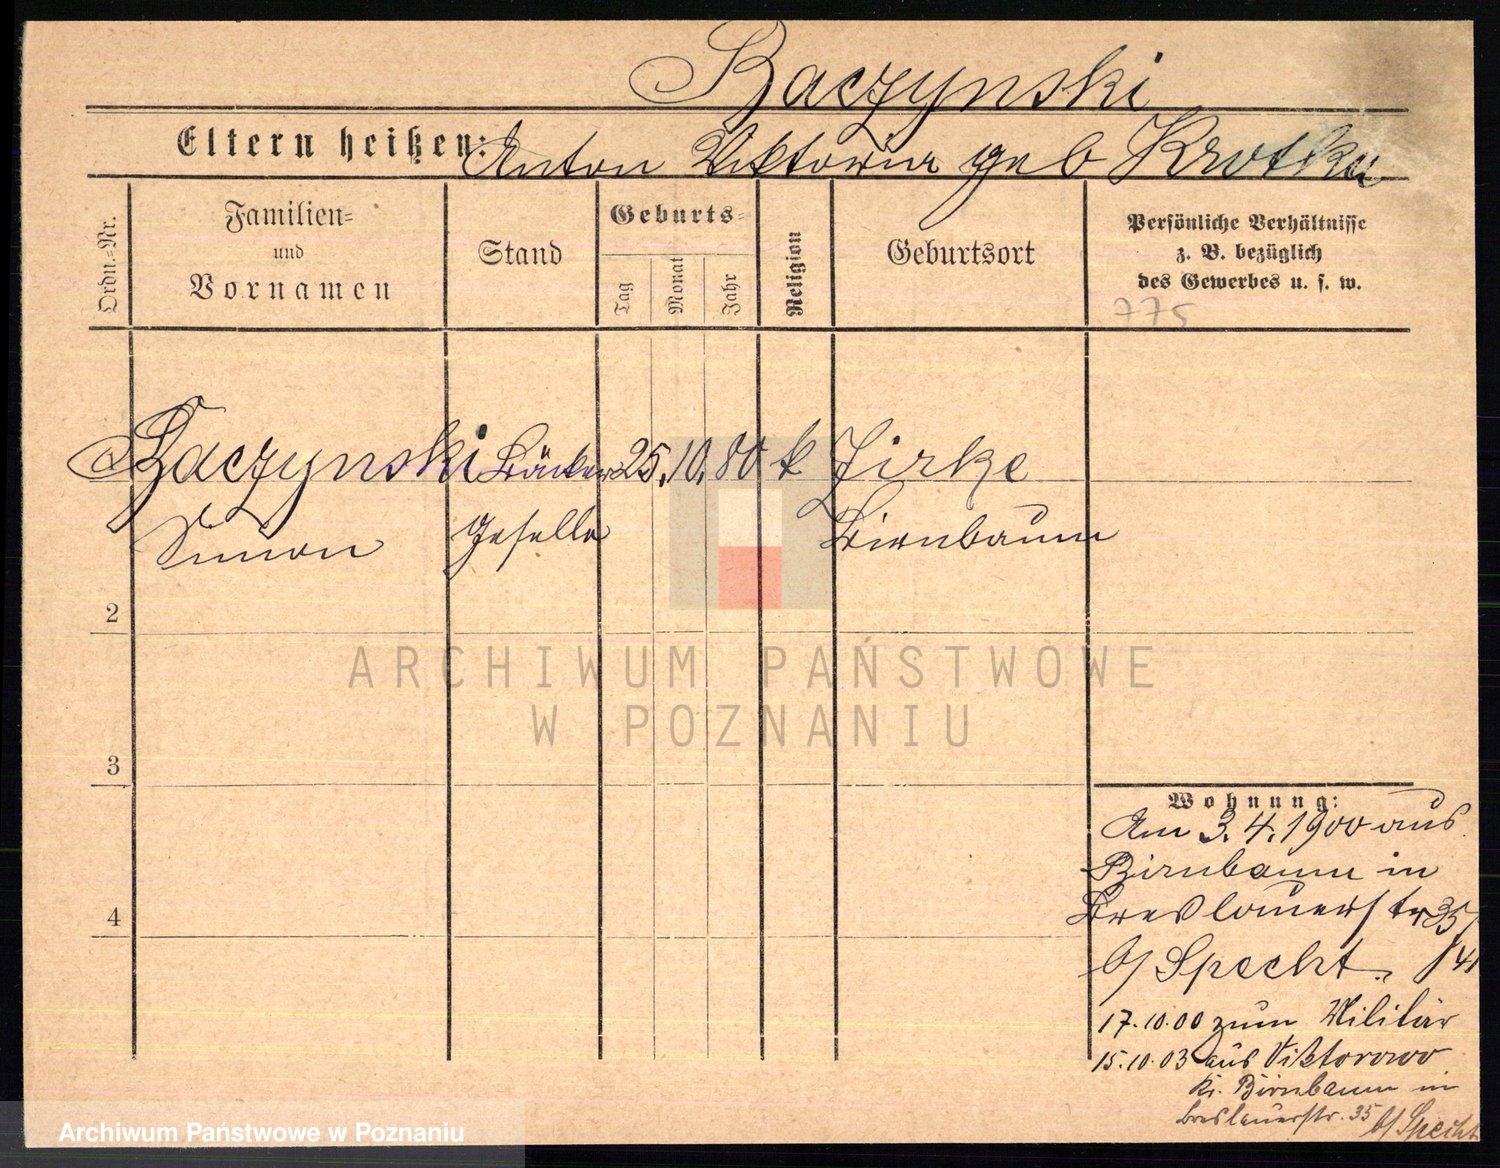 Baczynski
Eltern heißen: Anton Viktoria geb Krotka
Ordn.=Nr.
Familien=
und
Vornamen
Stand
Geburts=
Tag
Monat
Jahr
Religion
Geburtsort
Persönliche Verhältnisse
z. B. bezüglich
des Gewerbes u. s. w.
775
Baczynski Bäcker 25. 10. 80 k Zirke
Simon geselle Birnbaum
2
ARCHIWUM PAŃSTWOWE
W POZNANIU
3
Wohnung:
Am 3. 4. 1900 aus
Birnbaum in
4
Breslauerstr 35
b/ Specht. /4
17.10.00 zum Militär
15.10.03 aus Viktorowo
Kr. Birnbaum in
Breslauerstr. 35 b/ Specht
Archiwum Państwowe w Poznaniu